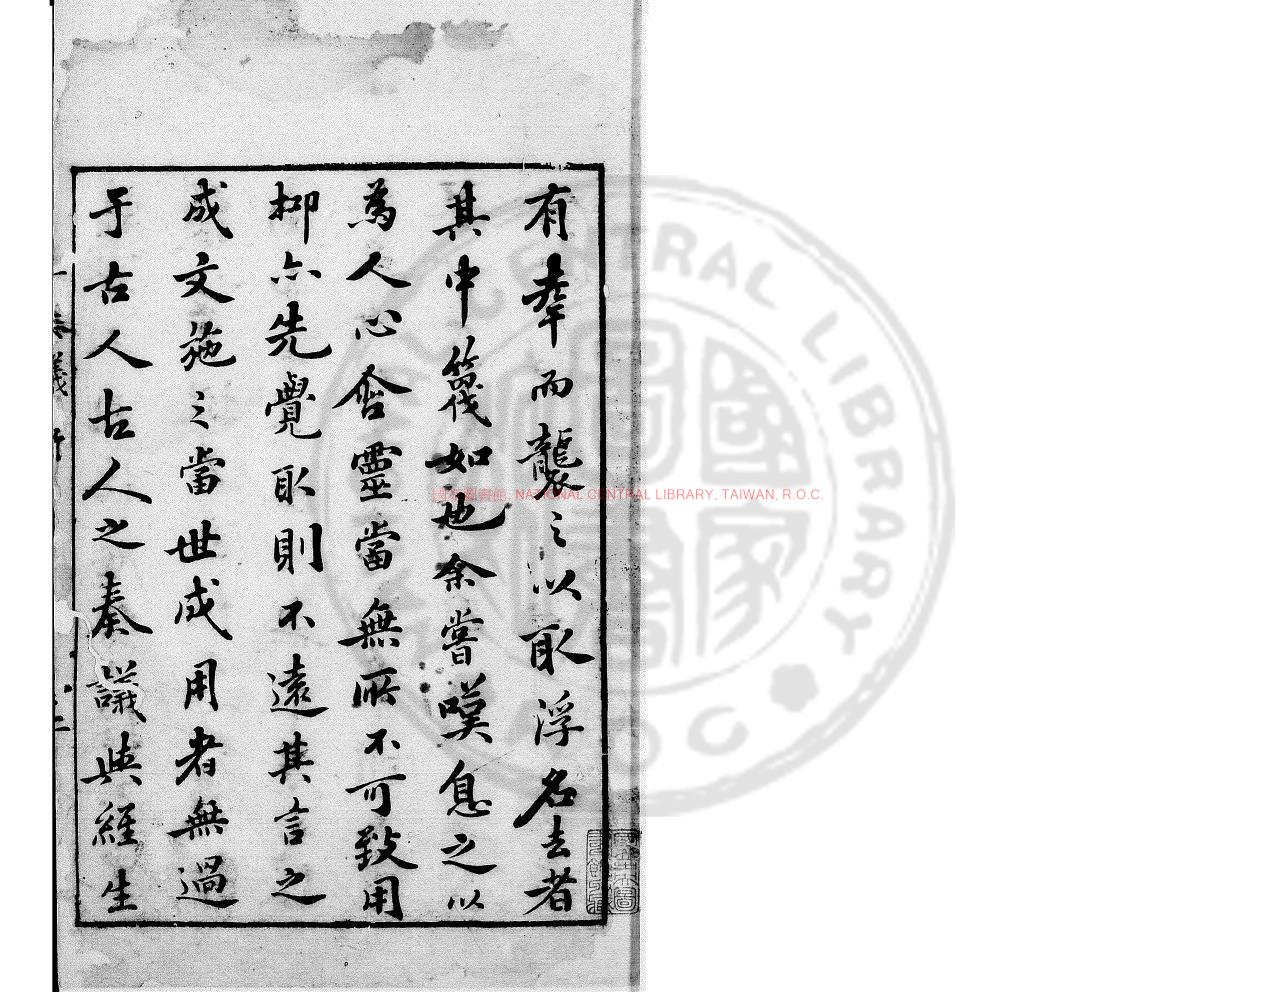 有羣而襲之以取浮名去者
其中篾如也余嘗嘆息之以
為人心含靈當無所不可致用
柳亦先覺取則不遠其言之
成文施之當世成用者無過
于古人古人之奏議與經生
國家圖書館, NATIONAL CENTRAL LIBRARY, TAIWAN, R.O.C.